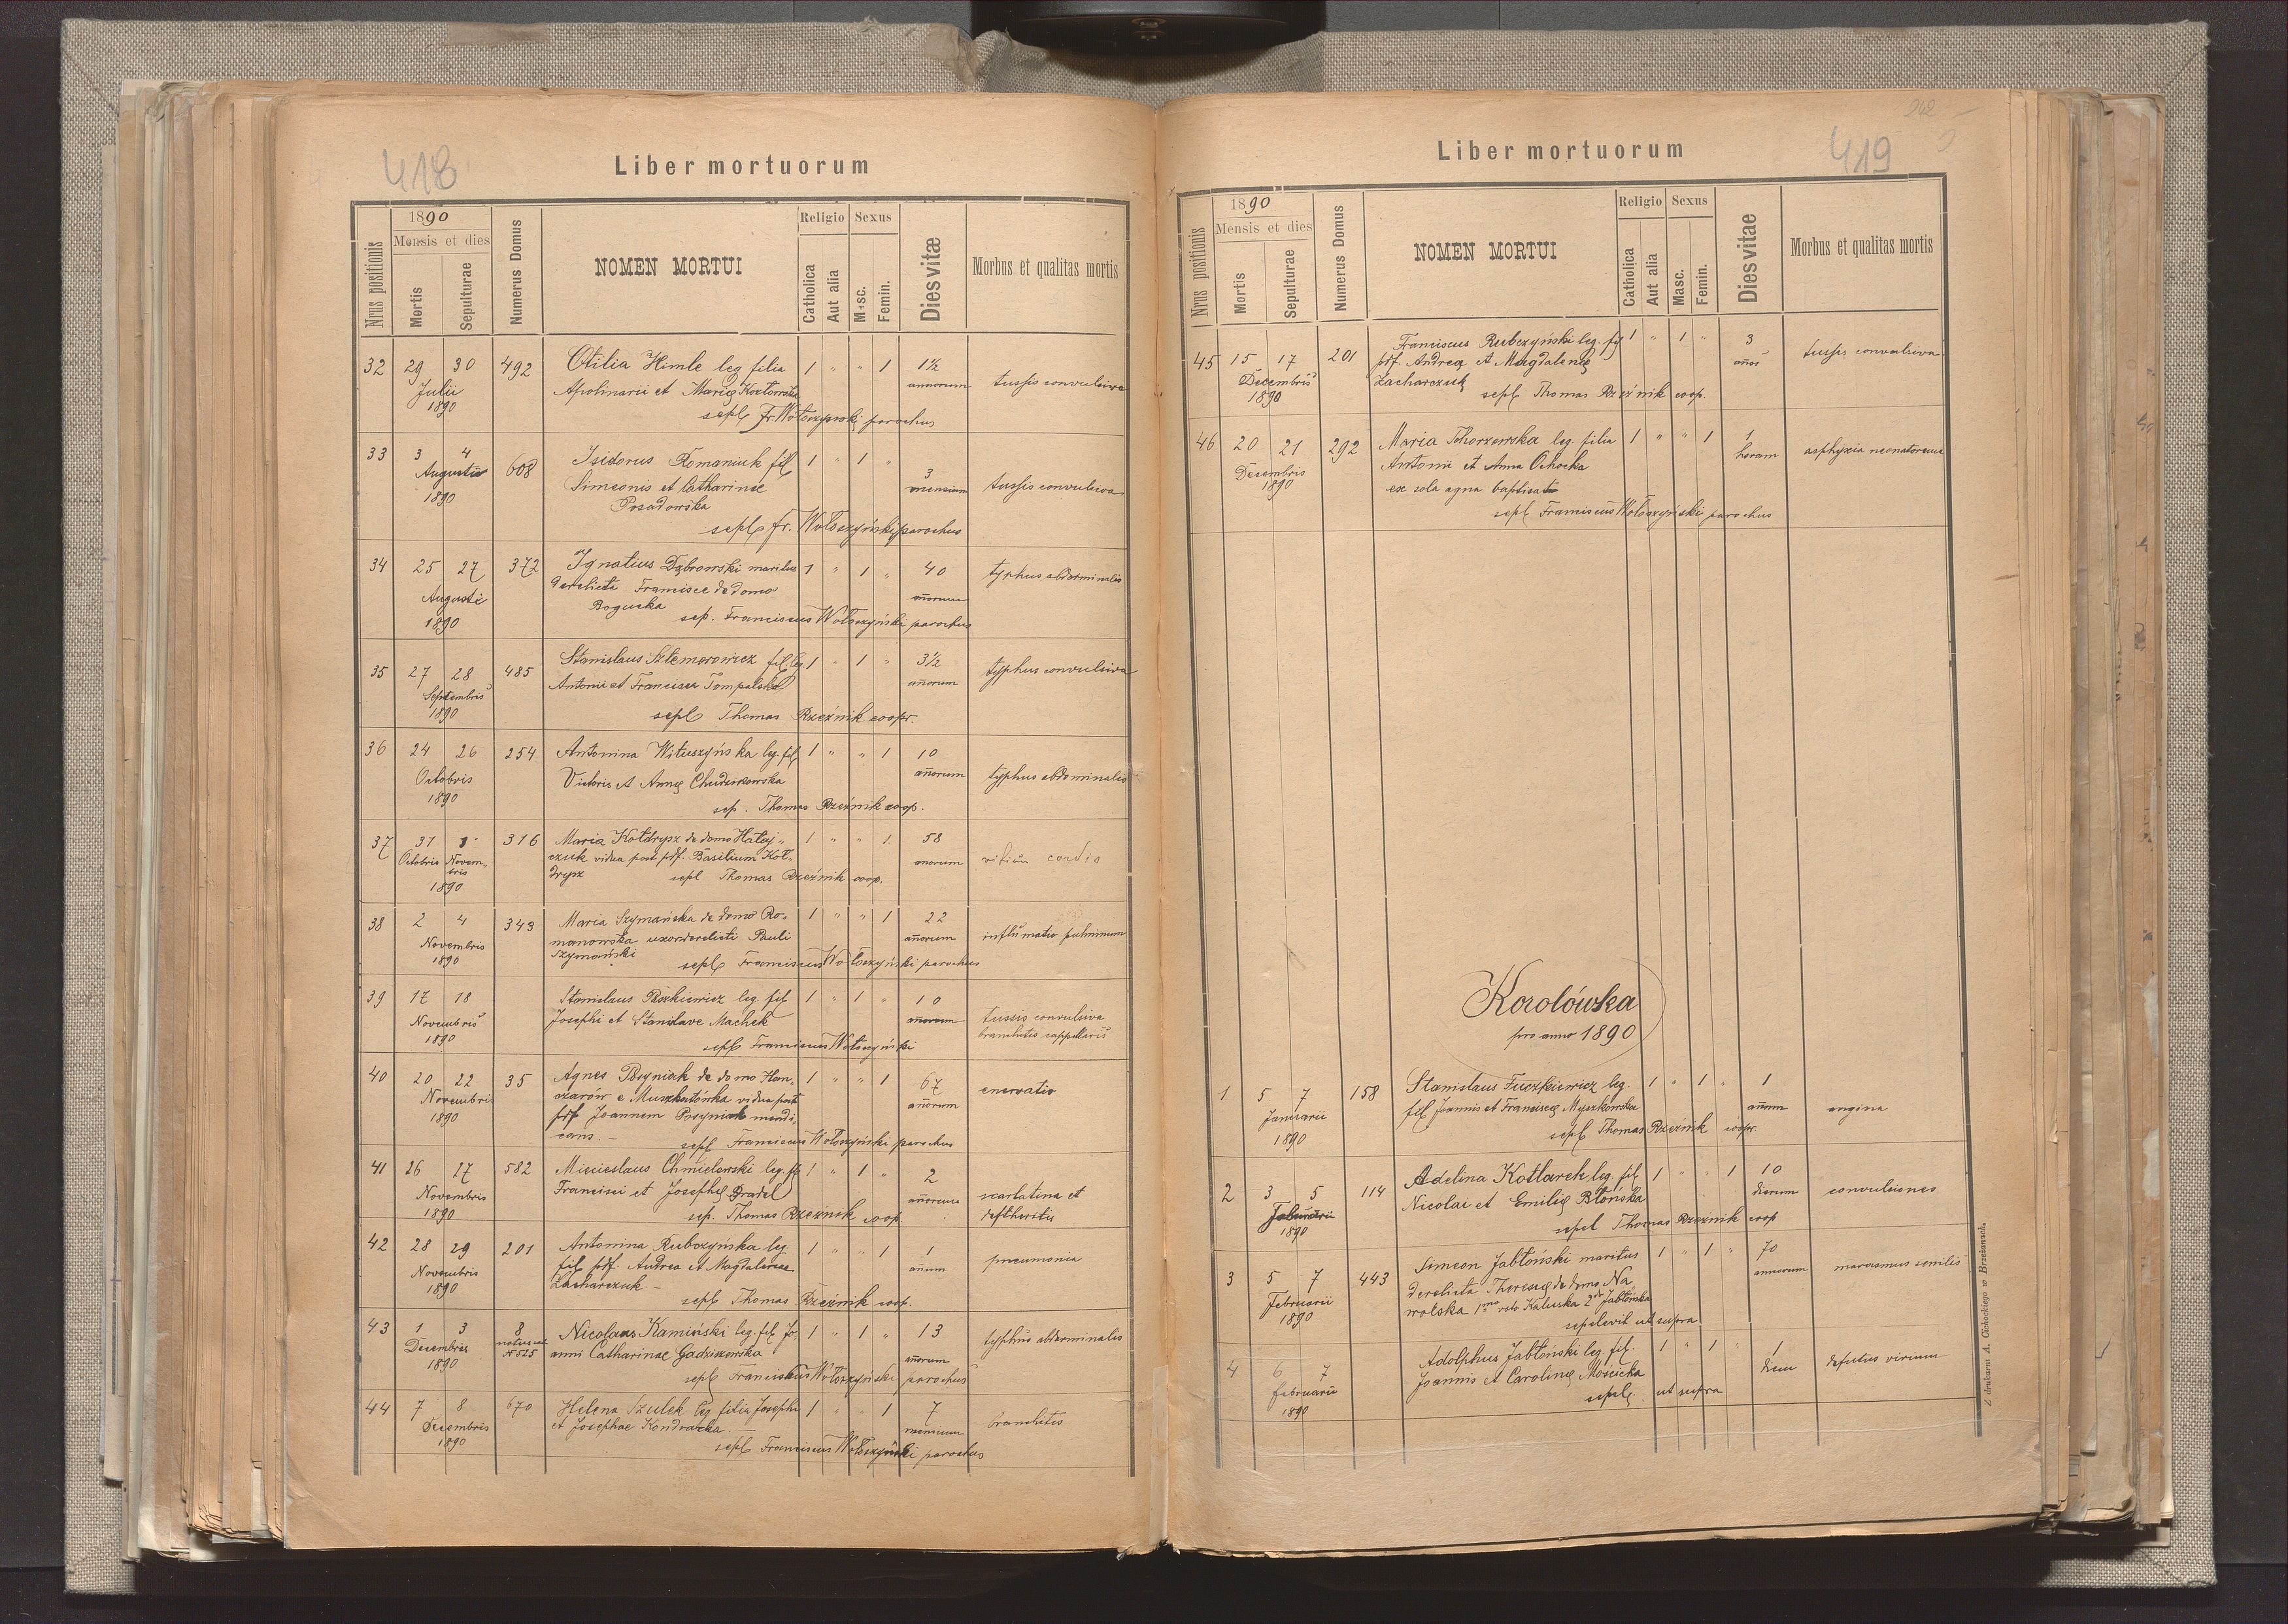 418
Liber mortuorum
Nrus positionis
1890
Mensis et dies
Mortis
Sepulturae
Numerus Domus
NOMEN MORTUI
Religio
Catholica
Aut alia
Sexus
Masc.
Femin.
Dies vitæ
Morbus et qualitas mortis
32 29 30 492 Otilia Himle leg filia 1 " " 1 1½
Julii Apolinarii et Mariæ annorum tussis convulsiva
1890 sepl Fr Wołoszyński parochus
33 3 4 608 Isidorus Romaniuk fil 1 " 1 " 3
Augusti Simeonis et Catharinae mensium tussis convulsiva
1890 Posadowska
sepl fr. Wołoszyński parochus
34 25 27 372 Ignatius Dąbrowski maritus 1 " 1 " 40 typhus abdominalis
Augusti derelicta Francisce de domo añorum
1890 Rogucka
sep. Franciscus Wołoszyński parochus
35 27 28 485 Stanislaus Sztemerowicz fil leg 1 " 1 " 3½ typhus convulsiva
Septembris Antonii et Francisca Tompalska añorum
1890 sepl Thomas Rzeźnik coopr.
36 24 26 254 Antonina Wituszyńska leg. fil 1 " " 1 10
Octobris Victoris et Annæ añorum typhus abdominalis
1890 sep. Thomas Rzeźnik coop.
37 31 1 316 Maria Kołdrysz de domo Hałaj- 1 " " 1 58
Octobris Novem- czuk vidua post pdf. Basilium Koł- anorum vitium cordis
bris drysz sepl Thomas Rzeźnik coop.
1890
38 2 4 343 Maria Szymańska de domo Ro- 1 " " 1 22
Novembris manowska uxor derelicti Pauli añorum inflamatio pulmonum
1890 Szymański
sepl Franciscus Wołoszyński parochus
39 17 18 Stanislaus leg. fil 1 " 1 " 10
Novembris Josephi et Stanislave Machek añorum tussis convulsiva
1890 branchitis cappillaris
sepl Franciscus Wołoszyński
40 20 22 35 Agnes Posyniak de domo Hon- 1 " " 1 67 enervatio
Novembris czarów e Muszkatówka vidua post añorum
1890 pdf Joannem Posyniak mendi-
cans. –
sepl Franciscus Wołoszyński parochus
41 26 27 582 Miecieslaus Chmielewski leg. fil 1 " 1 " 2
Novembris Francisci et Josephæ Pradel añorum scarlatina et
1890 sep. Thomas Rzeźnik coop difteritis
42 28 29 201 Antonina Rubczyńska leg. 1 " " 1 1
Novembris fil pdf. Andrea et Magdalenae añum pneumonia
1890 Zacharczuk –
sepl Thomas Rzeźnik coop
43 1 3 8 Nicolaus Kamiński leg. fil Jo- 1 " 1 " 13 typhus abdominalis
Decembris natus sub N 525 anni Catharinae Gadziszewska añorum
1890 sepl Franciscus Wołoszyński parochus
44 7 8 670 Helena Szulek leg filia Josephi 1 " " 1 7
Decembris et Josephae Kondracka mensium branchitis
1890 sepl Franciscus Wołoszyński parochus
242
419
Liber mortuorum
Nrus positionis
1890
Mensis et dies
Mortis
Sepulturae
Numerus Domus
NOMEN MORTUI
Religio
Catholica
Aut alia
Sexus
Masc.
Femin.
Dies vitae
Morbus et qualitas mortis
45 15 17 201 Franciscus Rubczyński leg. fil 1 " 1 " 3 tussis convulsiva
Decembris pdf. Andrea et Magdalenæ años
1890 Zacharczuk
sepl Thomas Rzeźnik coop.
46 20 21 292 Maria Tchorzewska leg. filia 1 " " 1 1
Decembris Antonii et Anna Ochocka horam asphyxia neonatorum
1890 ex sola aqua baptisata
sepl Franciscus Wołoszyński parochus
Korolówka
pro anno 1890
1 5 7 158 Stanislaus leg. 1 " 1 " 1
Januarii fil Joannis et Franciscæ Myszkowska añum angina
1890 sepl Thomas Rzeźnik coopr.
2 3 5 114 Adelina Kotlarek leg. fil 1 " " 1 10
Februarii Nicolai et Emiliæ Błońska dierum convulsiones
1890 sepel Thomas Rzeźnik coop
3 5 7 443 Simeon Jabłoński maritus 1 " 1 " 70
Februarii derelicta Theresiæ de domo Na annorum marasmus senilis
1890 wolska 1mo voto Kałuska 2do Jabłońska
sepelevit ut supra
4 6 7 Adolphus Jabłoński leg. fil. 1 " 1 " 1
Februarii Joannis et Carolinæ Mościcka diem defutus virium
1890 sepel. ut supra
Z drukarni A. Cichockiego w Brzeżanach.